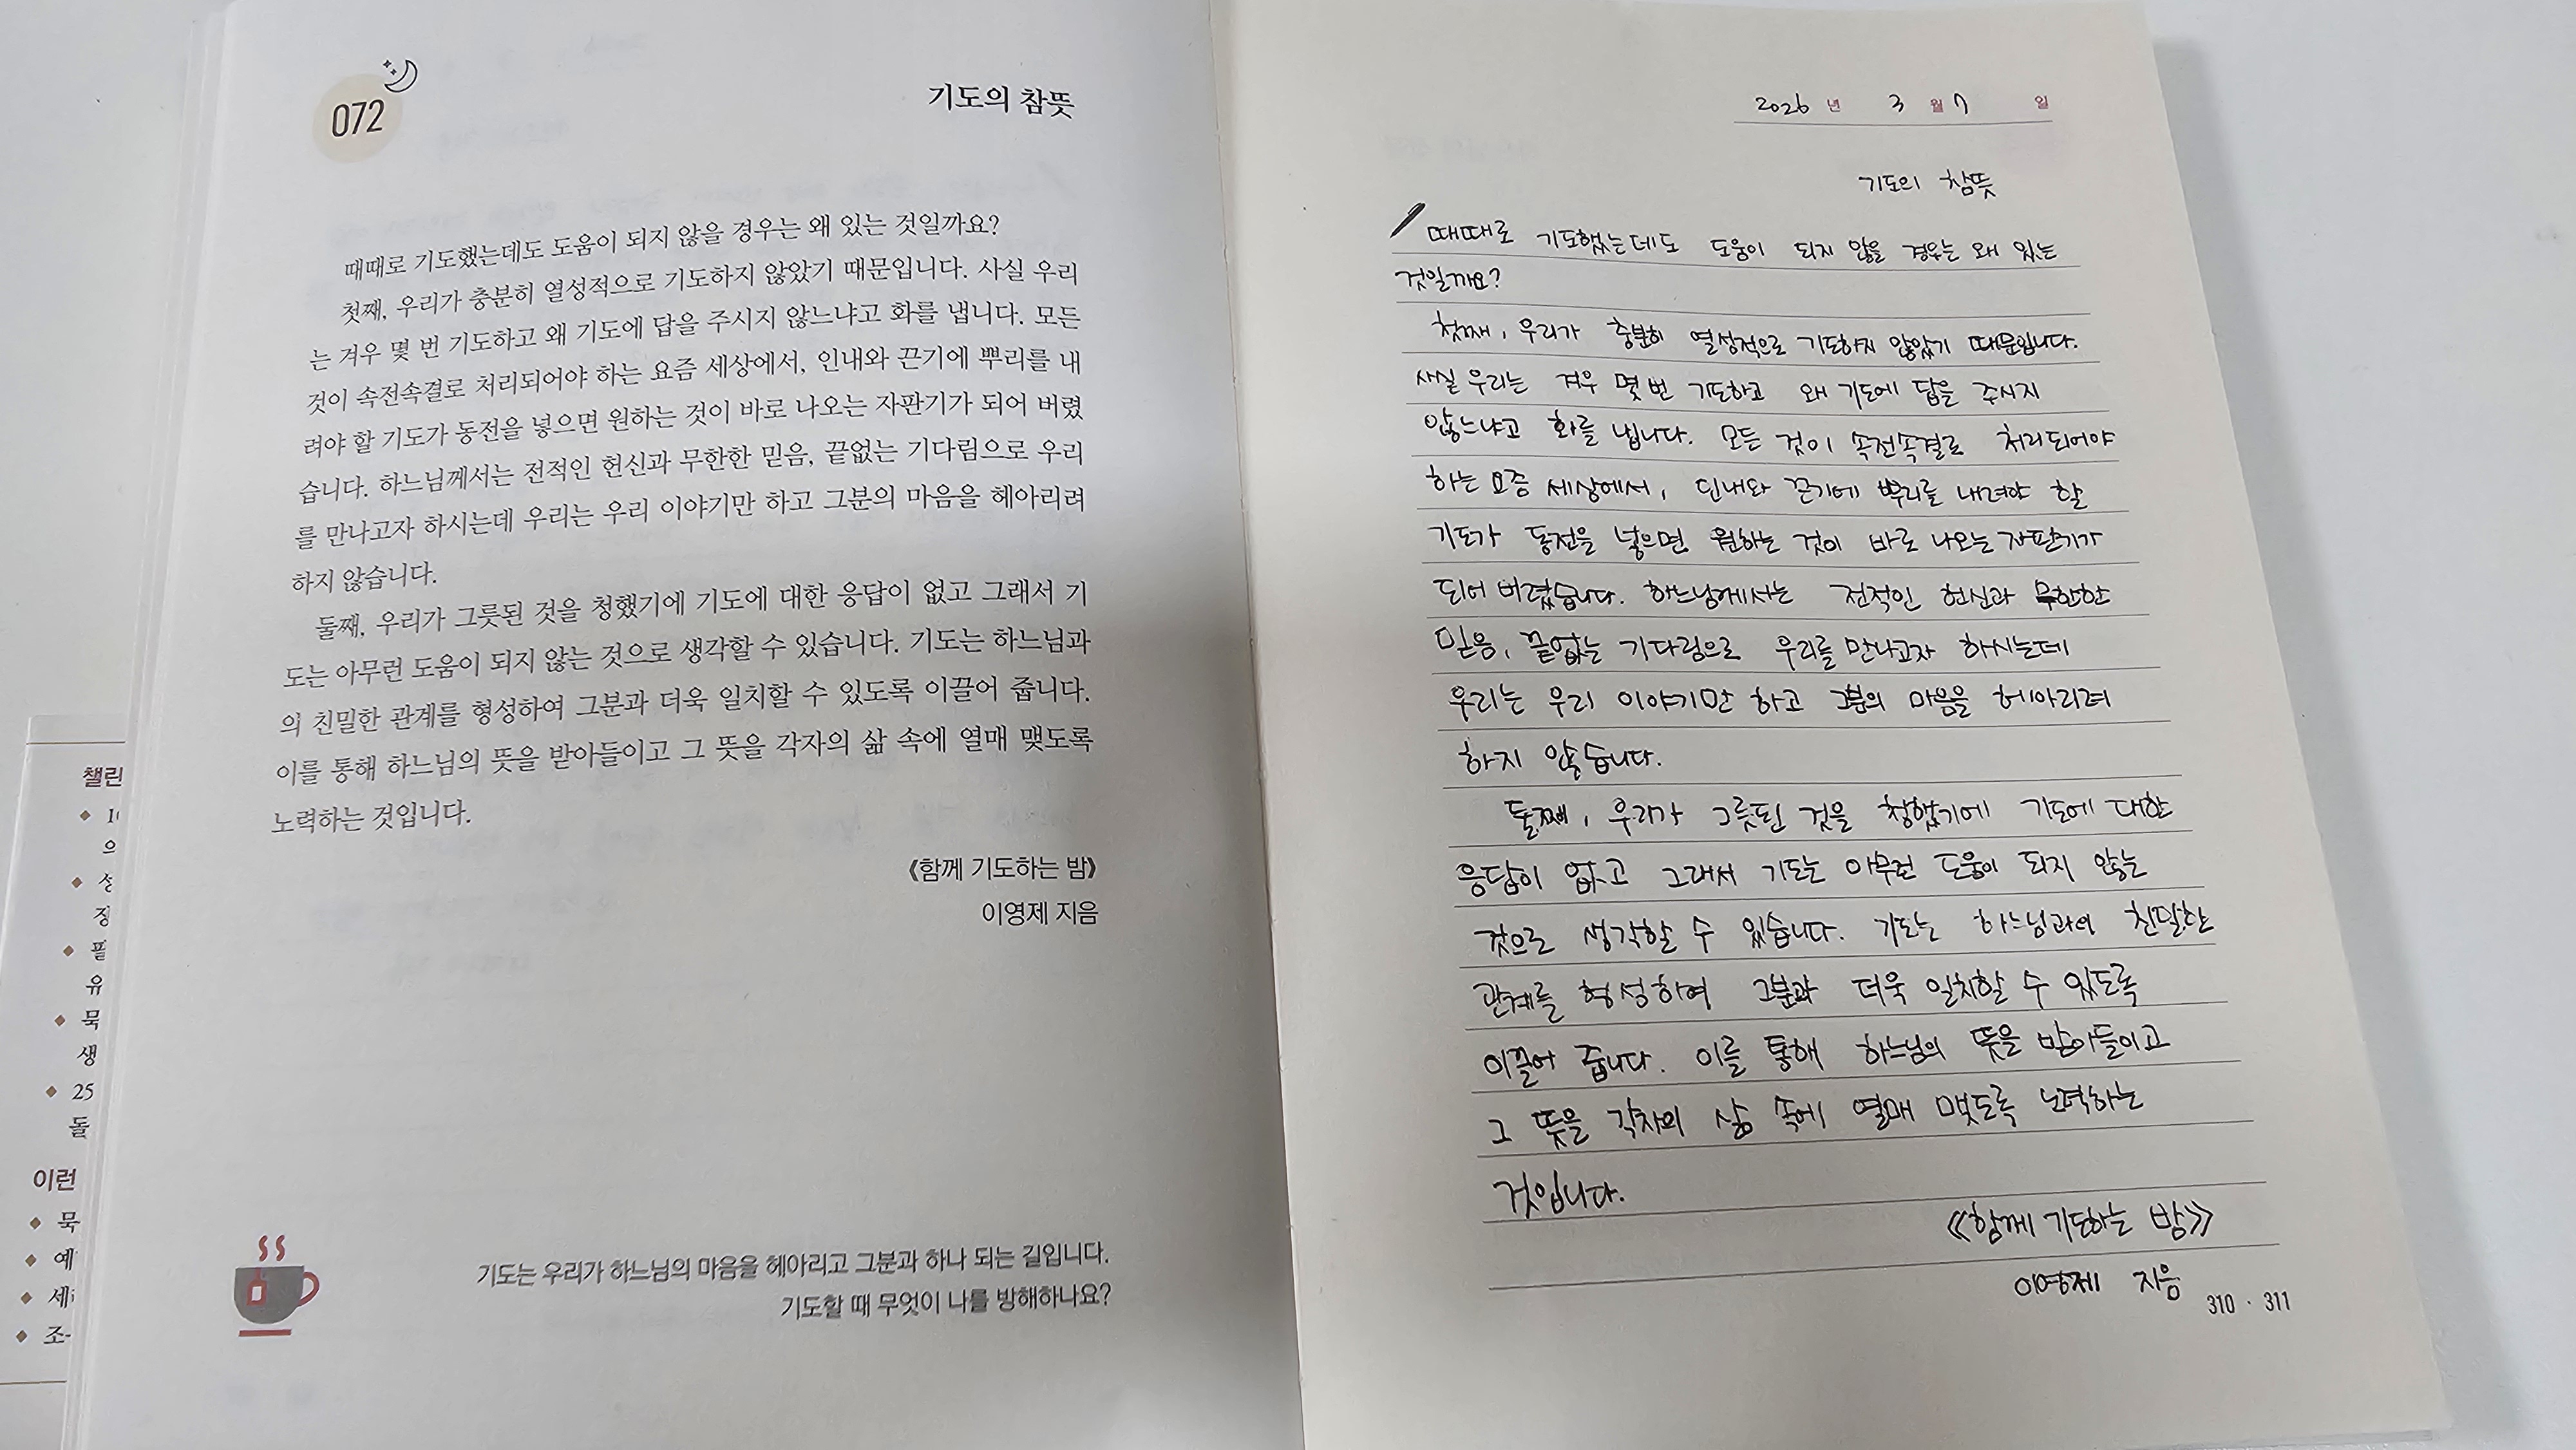 072
기도의 참뜻
때때로 기도했는데도 도움이 되지 않을 경우는 왜 있는 것일까요?
첫째, 우리가 충분히 열성적으로 기도하지 않았기 때문입니다. 사실 우리
는 겨우 몇 번 기도하고 왜 기도에 답을 주시지 않느냐고 화를 냅니다. 모든
것이 속전속결로 처리되어야 하는 요즘 세상에서, 인내와 끈기에 뿌리를 내
려야 할 기도가 동전을 넣으면 원하는 것이 바로 나오는 자판기가 되어 버렸
습니다. 하느님께서는 전적인 헌신과 무한한 믿음, 끝없는 기다림으로 우리
를 만나고자 하시는데 우리는 우리 이야기만 하고 그분의 마음을 헤아리려
하지 않습니다.
둘째, 우리가 그릇된 것을 청했기에 기도에 대한 응답이 없고 그래서 기
도는 아무런 도움이 되지 않는 것으로 생각할 수 있습니다. 기도는 하느님과
의 친밀한 관계를 형성하여 그분과 더욱 일치할 수 있도록 이끌어 줍니다.
이를 통해 하느님의 뜻을 받아들이고 그 뜻을 각자의 삶 속에 열매 맺도록
노력하는 것입니다.
《함께 기도하는 밤》
이영제 지음
기도는 우리가 하느님의 마음을 헤아리고 그분과 하나 되는 길입니다.
기도할 때 무엇이 나를 방해하나요?
챌린
의
유
묵
생
25
돌
이런
묵
예
조
2026 년 3 월 7 일
기도의 참뜻
때때로 기도했는데도 도움이 되지 않을 경우는 왜 있는
것일까요?
첫째, 우리가 충분히 열성적으로 기도하지 않았기 때문입니다.
사실 우리는 겨우 몇 번 기도하고 왜 기도에 답을 주시지
않느냐고 화를 냅니다. 모든 것이 속전속결로 처리되어야
하는 요즘 세상에서, 인내와 끈기에 뿌리를 내려야 할
기도가 동전을 넣으면 원하는 것이 바로 나오는 자판기가
되어 버렸습니다. 하느님께서는 전적인 헌신과 무한한
믿음, 끝없는 기다림으로 우리를 만나고자 하시는데
우리는 우리 이야기만 하고 그분의 마음을 헤아리려
하지 않습니다.
둘째, 우리가 그릇된 것을 청했기에 기도에 대한
응답이 없고 그래서 기도는 아무런 도움이 되지 않는
것으로 생각할 수 있습니다. 기도는 하느님과의 친밀한
관계를 형성하여 그분과 더욱 일치할 수 있도록
이끌어 줍니다. 이를 통해 하느님의 뜻을 받아들이고
그 뜻을 각자의 삶 속에 열매 맺도록 노력하는
것입니다.
《함께 기도하는 밤》
이영제 지음
310 · 311